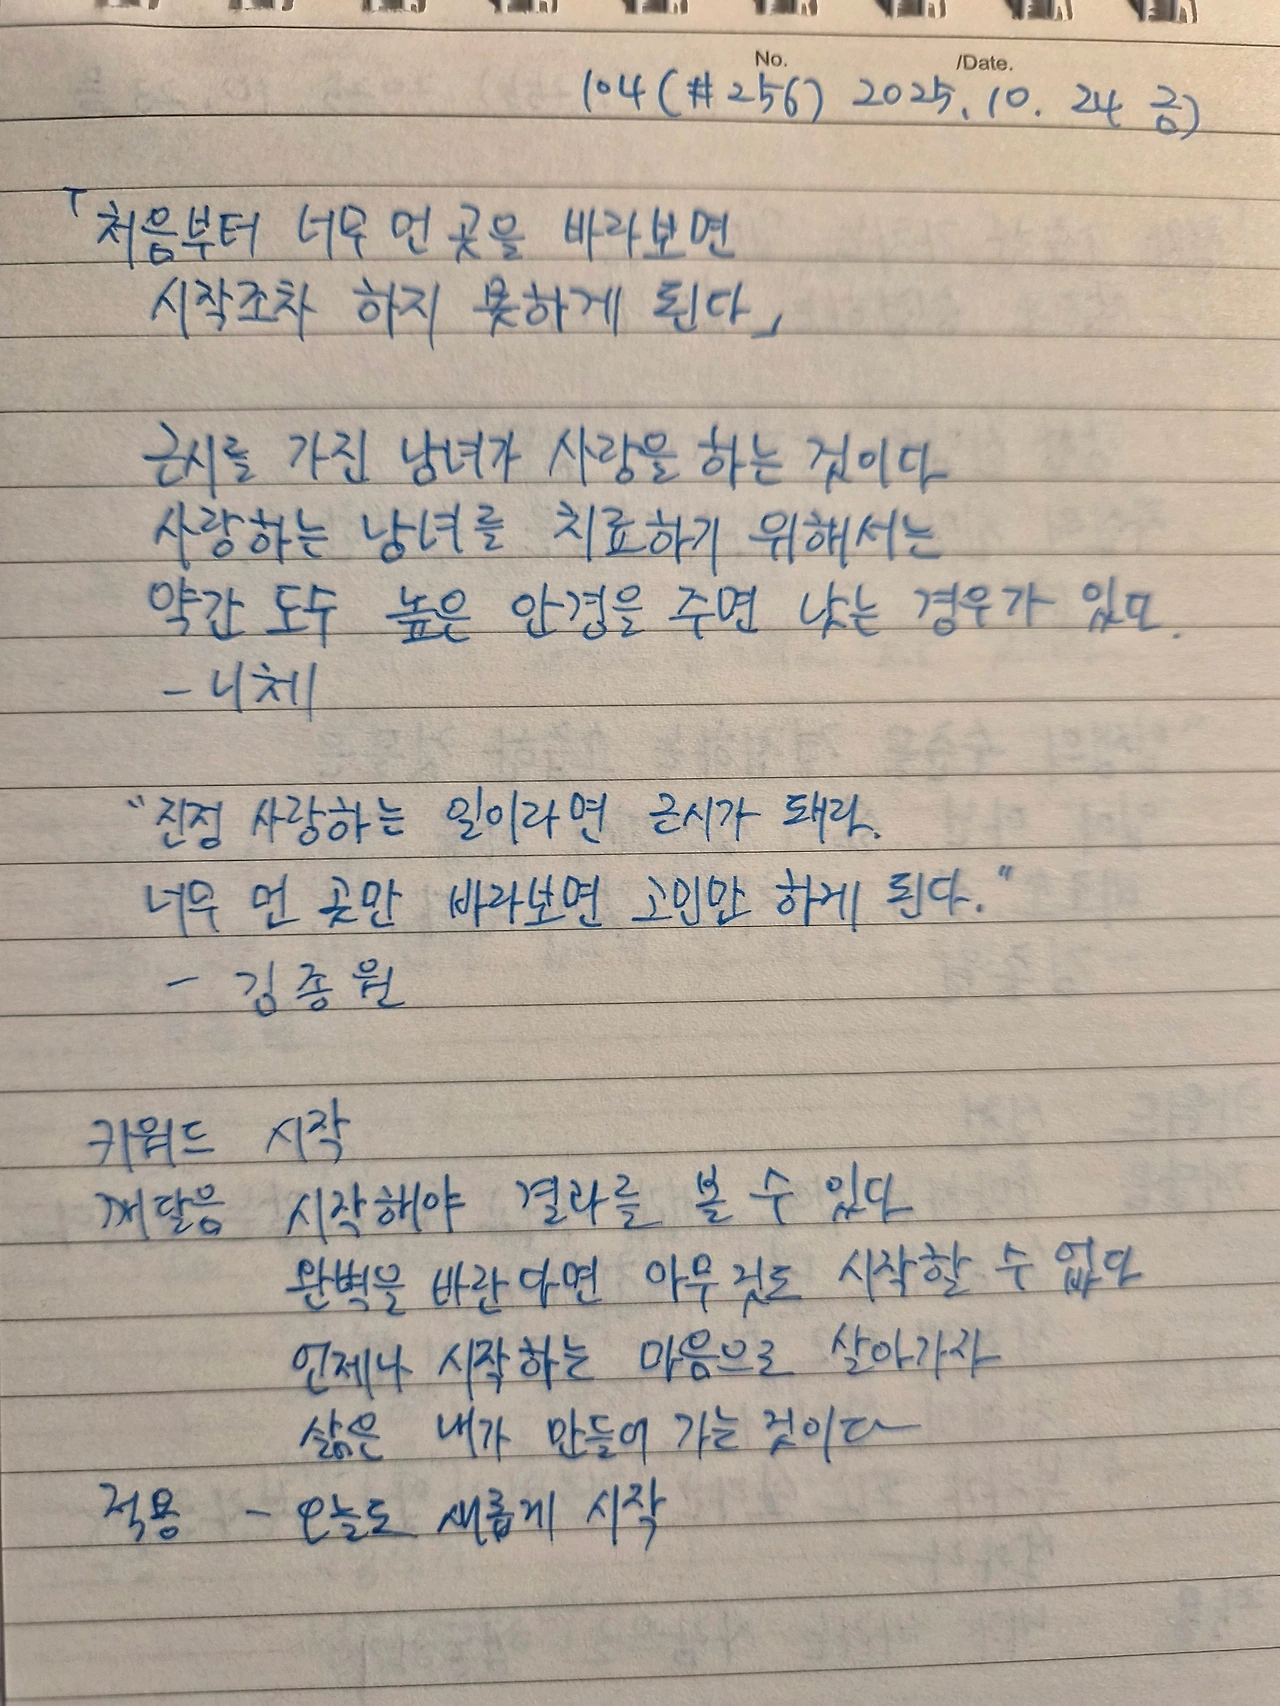 No. /Date.
104 (#256) 2025. 10. 24 금)
「처음부터 너무 먼 곳을 바라보면
시작조차 하지 못하게 된다」
근시를 가진 남녀가 사랑을 하는 것이다
사랑하는 남녀를 치료하기 위해서는
약간 도수 높은 안경을 주면 낫는 경우가 있다.
- 니체
"진정 사랑하는 일이라면 근시가 돼라.
너무 먼 곳만 바라보면 고민만 하게 된다."
- 김종원
키워드 시작
깨달음 시작해야 결과를 볼 수 있다
완벽을 바란다면 아무것도 시작할 수 없다
언제나 시작하는 마음으로 살아가자
삶은 내가 만들어 가는 것이다
적용 - 오늘도 새롭게 시작